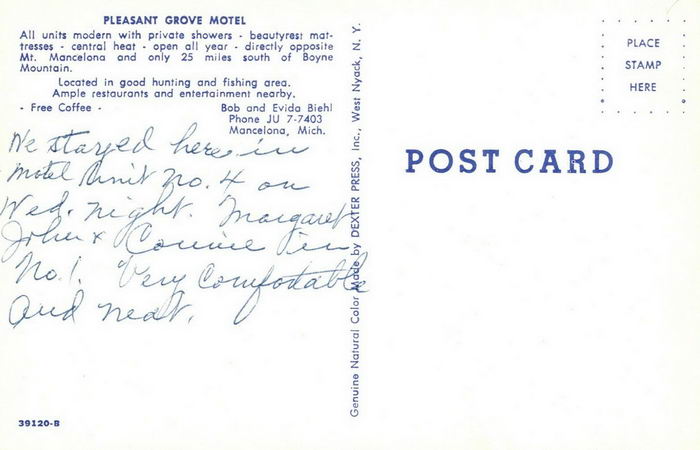 PLEASANT GROVE MOTEL
All units modern with private showers - beautyrest mat-
tresses - central heat - open all year - directly opposite
Mt. Mancelona and only 25 miles south of Boyne
Mountain.
Located in good hunting and fishing area.
Ample restaurants and entertainment nearby.
- Free Coffee -
Bob and Evida Biehl
Phone JU 7-7403
Mancelona, Mich.
We stayed here in
Motel Unit No. 4 on
Wed. night. Margaret
John & Connie in
No. 1. Very Comfortable
and neat.
39120-B
Genuine Natural Color Made by DEXTER PRESS, Inc., West Nyack, N. Y.
POST CARD
PLACE
STAMP
HERE